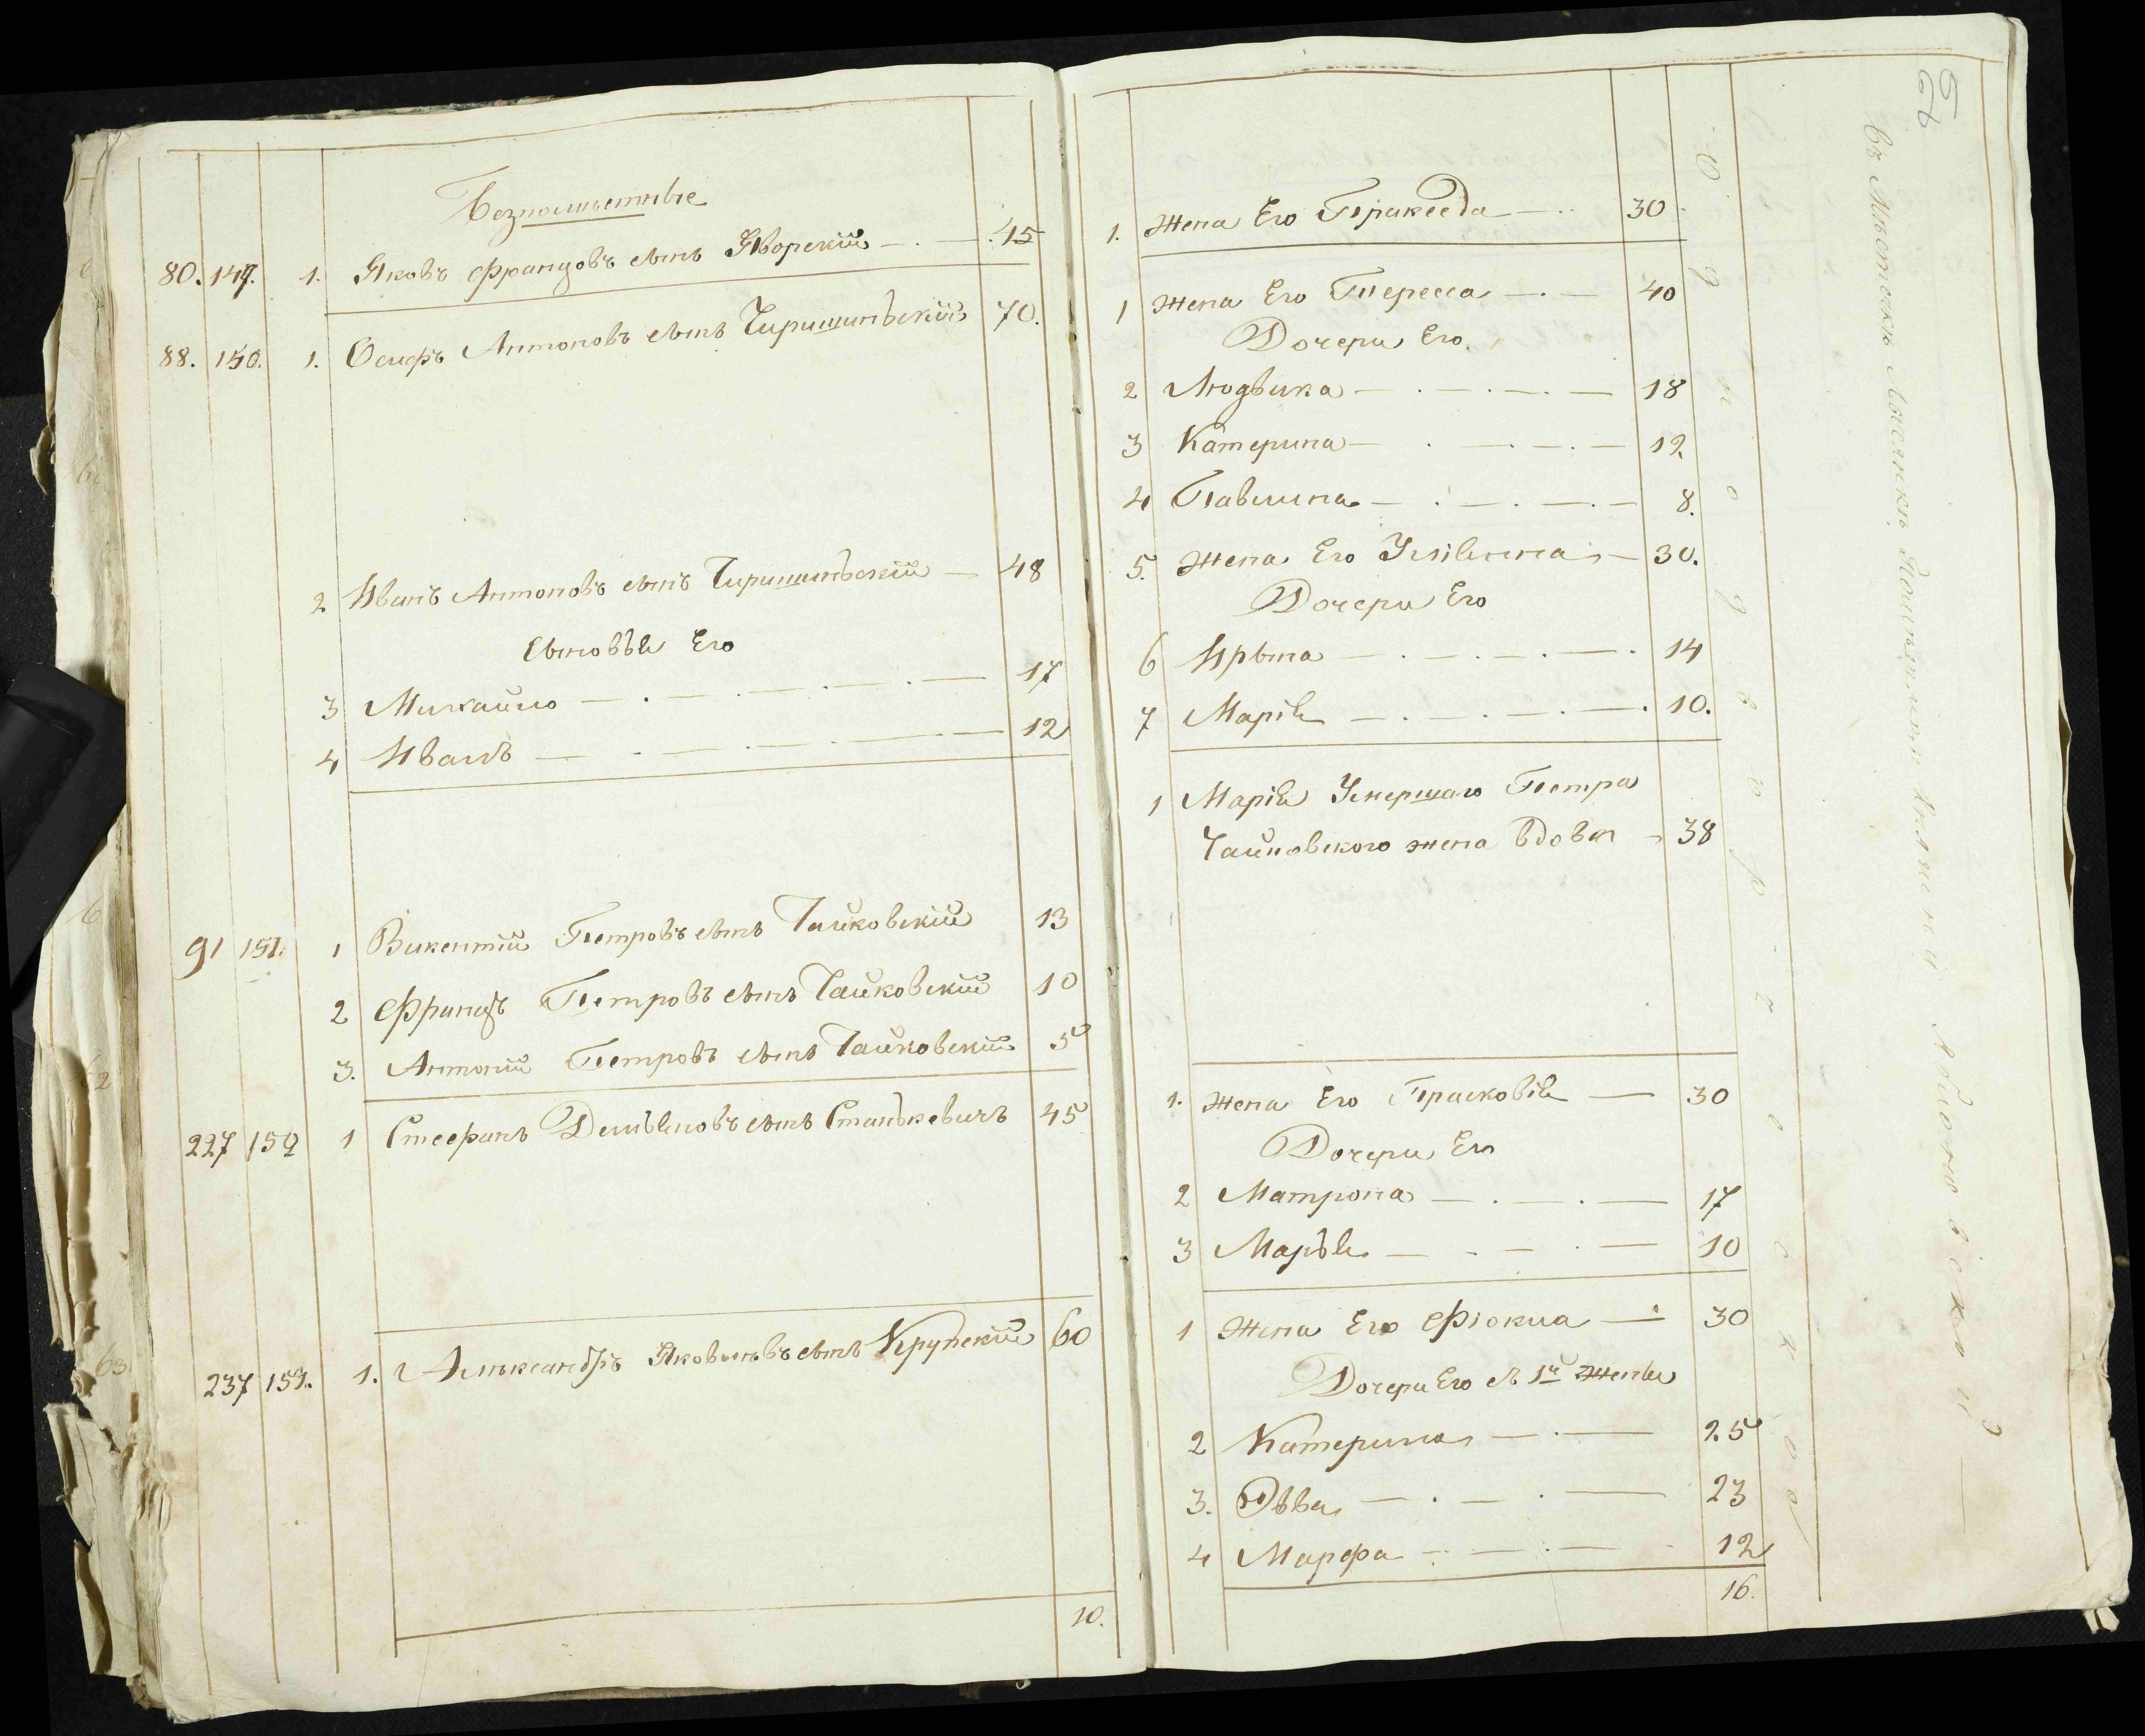 Безпомѣстные
80. 149. 1. Яковъ Францовъ сынъ Яворскій 45
88. 150. 1. Осифъ Антоновъ сынъ Чиришинскій 70.
2 Иванъ Антоновъ сынъ Чиришинскій 48
Сыновья Его
3 Михаило 17
4 Иванъ 12
91 151. 1 Викентій Петровъ сынъ Чайковскій 13
2 Францъ Петровъ сынъ Чайковскій 10
3. Антоній Петровъ сынъ Чайковскій 5
227 152 1 Стефанъ Демьяновъ сынъ Станькевичъ 45
237 153. 1. Александръ Яковлевъ сынъ Крупскій 60
10.
1. Жена Его Пракседа 30
1 Жена Его Тересса 40
Дочери Его
2 Людвика 18
3 Катерина 12
4 Павлина 8.
5. Жена Его Уліянна 30.
Дочери Его
6 Ирына 14
7 Марія 10.
1 Марія Умершаго Петра
Чайковского жена вдова 38
1. Жена Его Прасковія 30
Дочери Его
2 Матрона 17
3 Марья 10
1 Жена Его Фіокла 30
Дочери Его съ 1й Жены
2 Катерина 25
3. Эвва 23
4 Марфа 12
16.
Въ Мѣстечкѣ